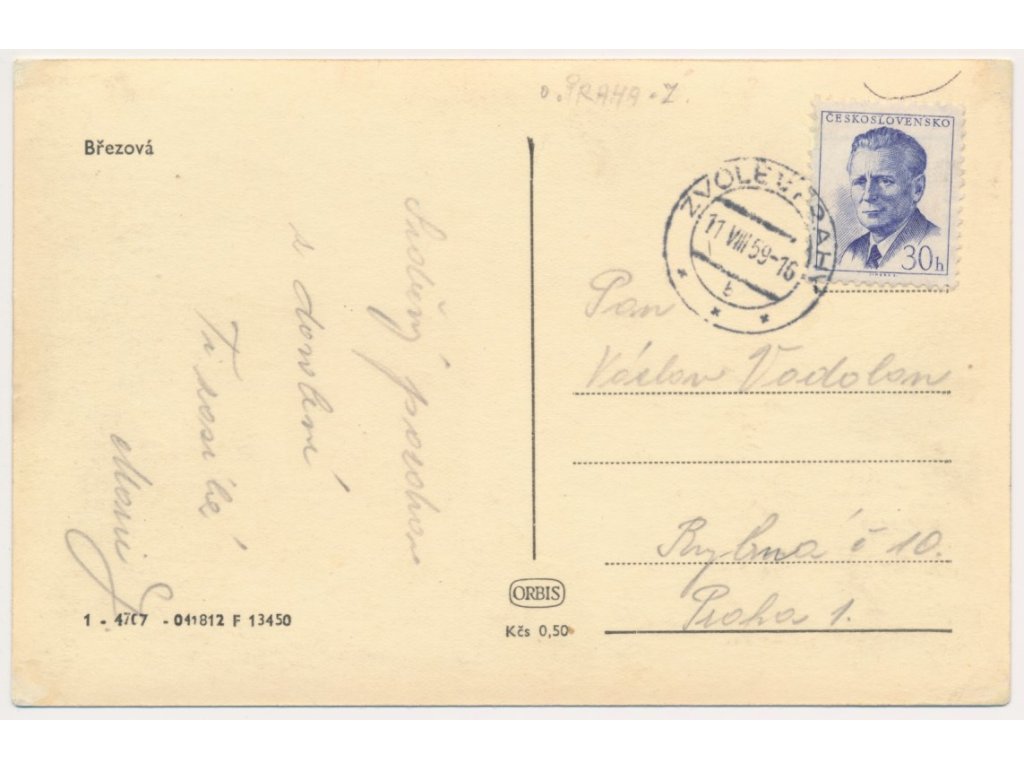 o. PRAHA - Z.
Březová
Srdečný pozdrav
z dovolené
Ti posílá
ČESKOSLOVENSKO
30h
ZVOLE U PRAHY
11 VIII 59-16
Pan
Václav Vodolan
Rybná č 10.
Praha 1.
ORBIS
Kčs 0,50
1 - 4707 - 041812 F 13450